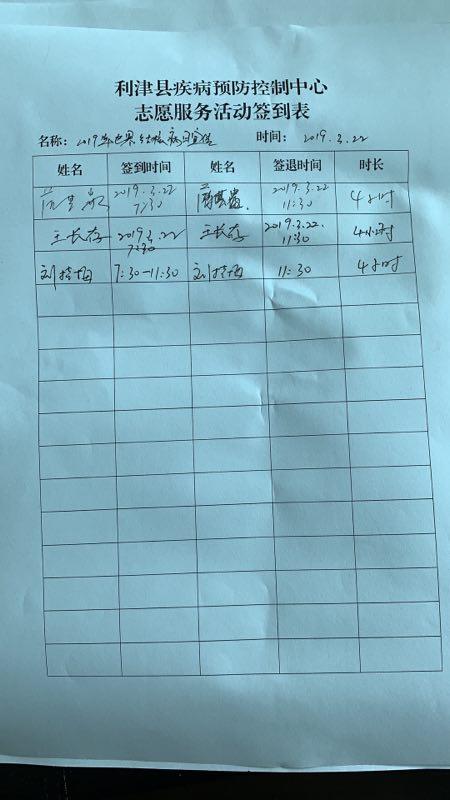 利津县疾病预防控制中心
志愿服务活动签到表
名称：2019年世界结核病日宣传 时间：2019.3.22
姓名 签到时间 姓名 签退时间 时长
2019.3.22 7:30 2019.3.22 11:30 4小时
王长存 2019.3.22 7:30 王长存 2019.3.22. 11:30 4小时
7:30-11:30 11:30 4小时